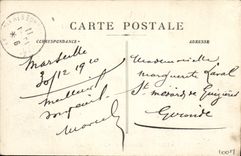 CARTE POSTALE
CORRESPONDANCE
ADRESSE
Marseille
30/12 1910
Meilleurs
souhaits
Marcel
Mademoiselle
Marguerite Laval
St médard de Guizières
Gironde